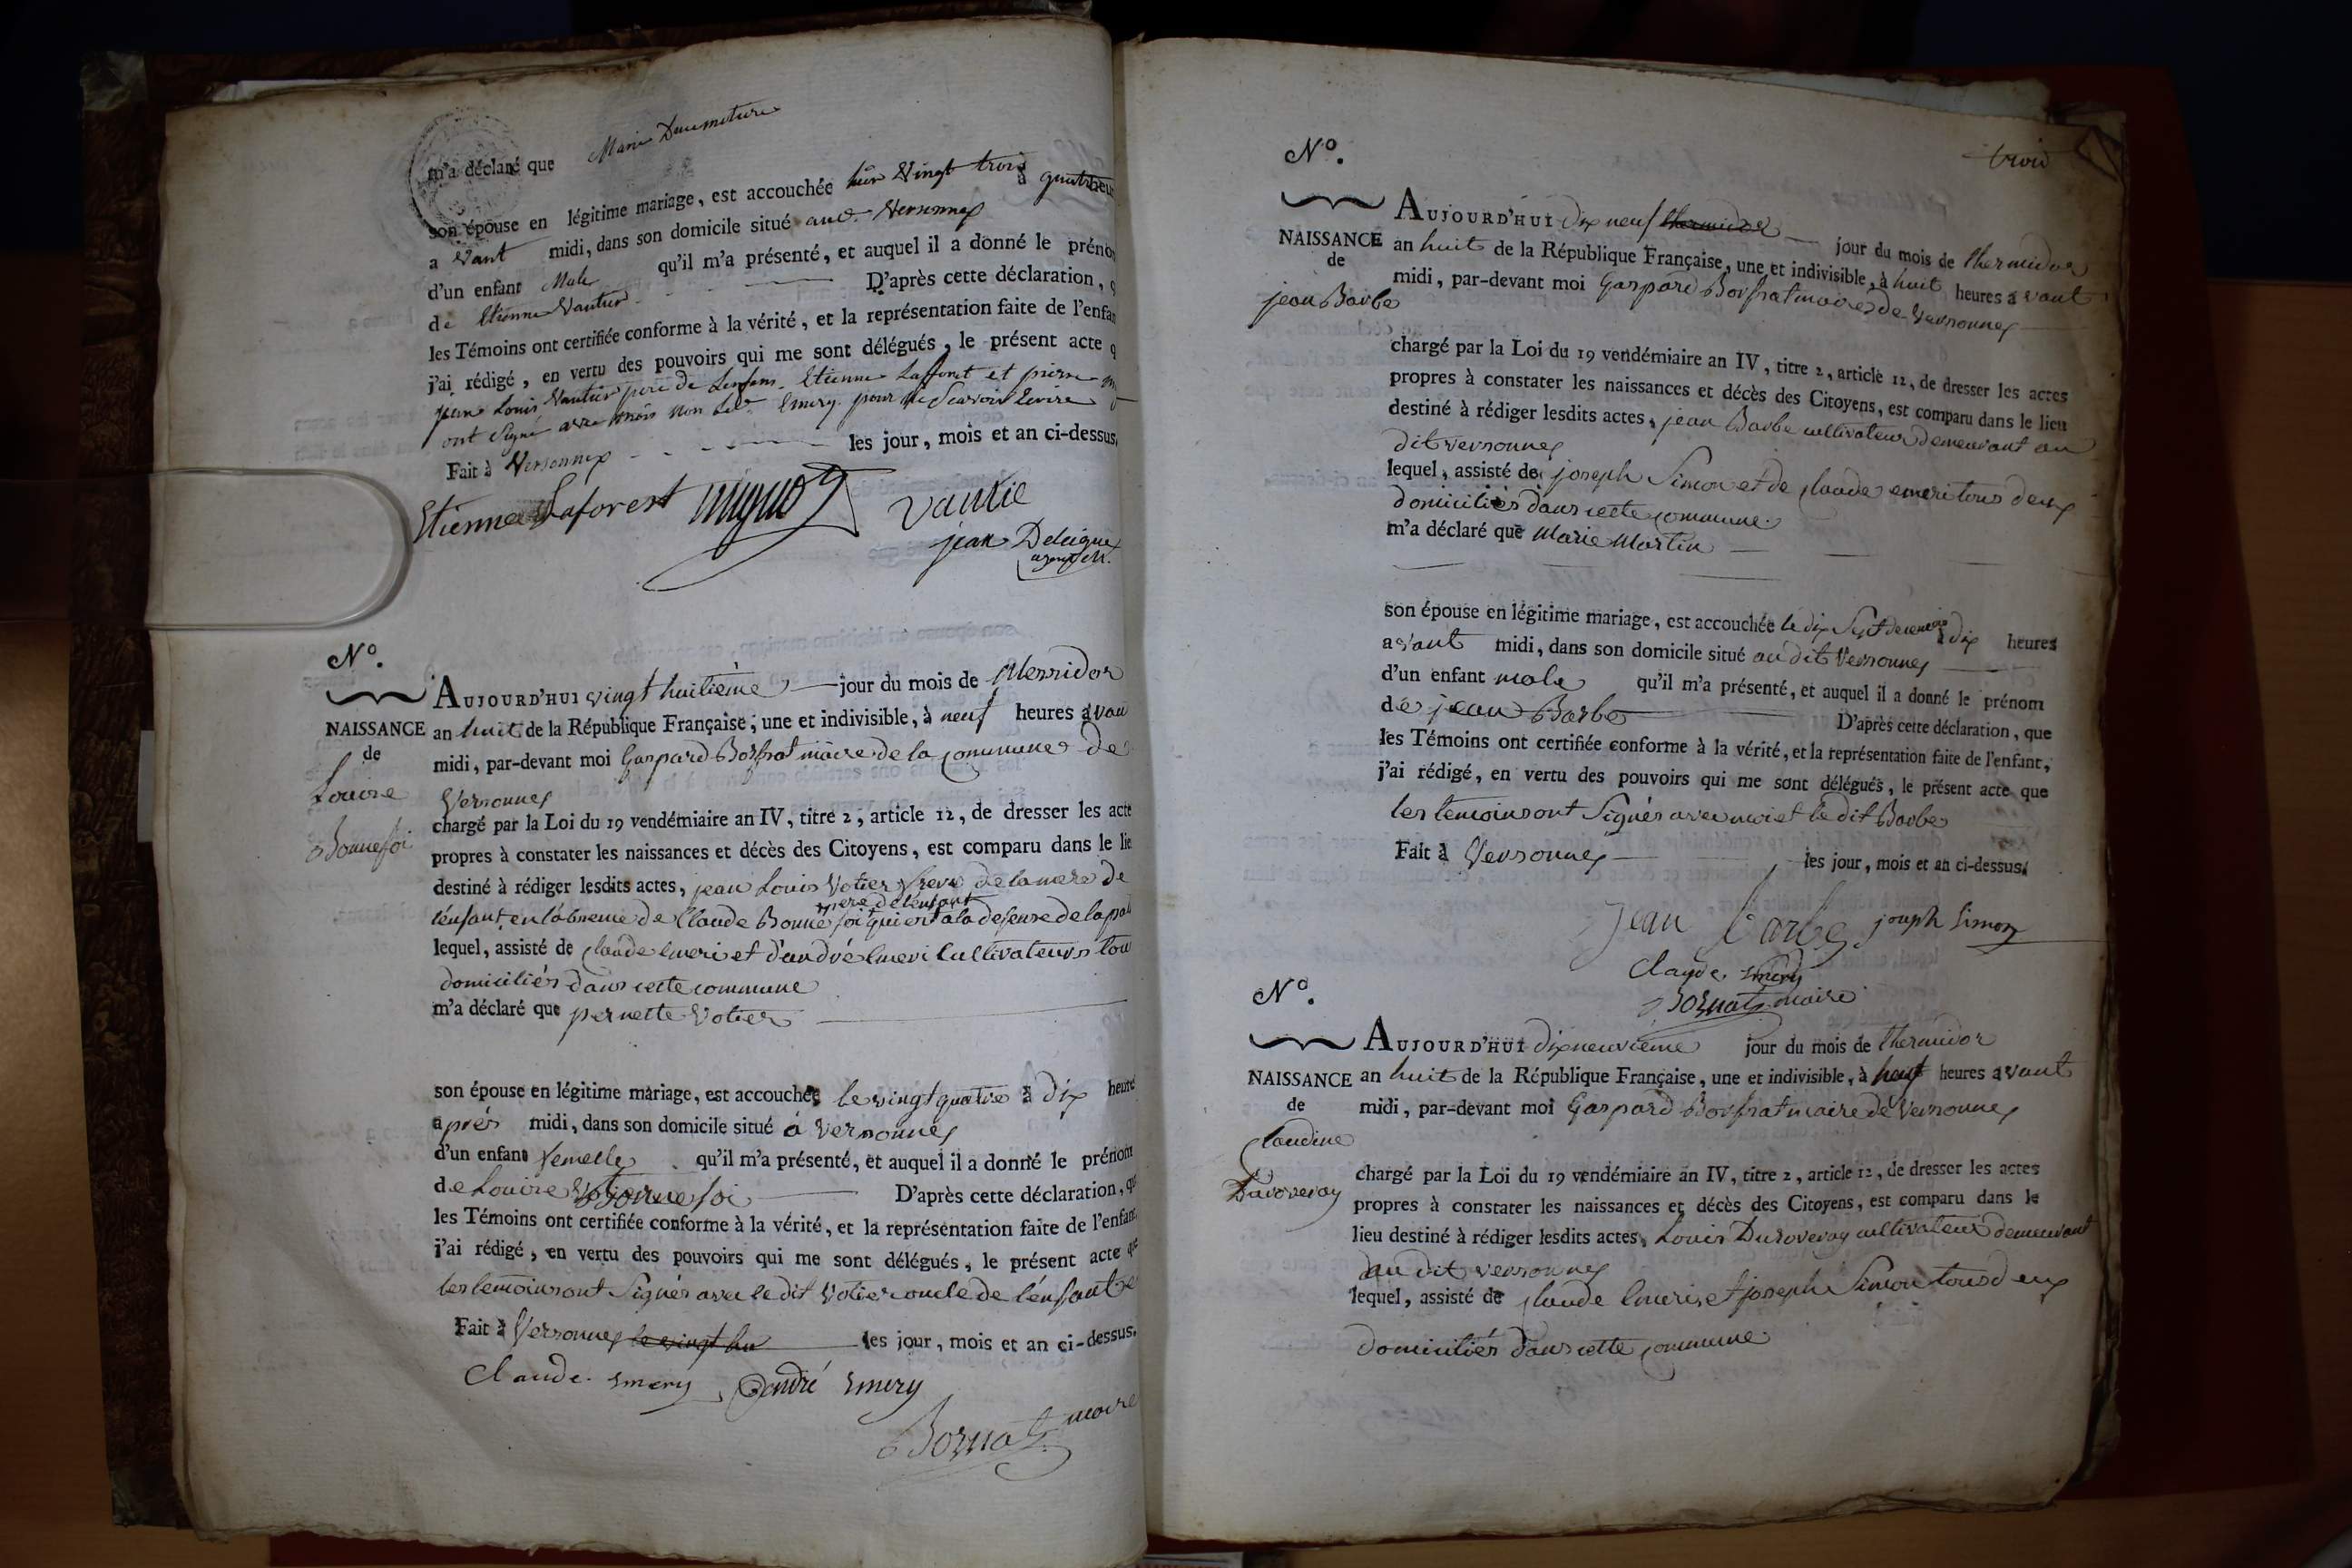 m'a déclaré que Marie
son épouse en légitime mariage, est accouchée hier vingt trois à quatre heur
avant midi, dans son domicile situé aud. Versonnex
d'un enfant Male qu'il m'a présenté, et auquel il a donné le préno
de Etienne Vautier D'après cette déclaration, q
les Témoins ont certifiée conforme à la vérité, et la représentation faite de l'enfan
j'ai rédigé, en vertu des pouvoirs qui me sont délégués, le présent acte q
jean Louis Vautier pere de Lenfans. Etienne Lafforest et pierre
ont Signé avec mois non led. Emery pour ne Scavoir Ecrire
Fait à Versonnex les jour, mois et an ci-dessus.
Etienne Laforest mignot vautie
jean Deleigue
agent
N°.
AUJOURD'HUI vingt huitième jour du mois de Messidor
NAISSANCE an huit de la République Française, une et indivisible, à neuf heures avan
de midi, par-devant moi Gaspard Bossat maire de la commune de
Louise Versonnex
chargé par la Loi du 19 vendémiaire an IV, titre 2, article 12, de dresser les acte
Bonnefoi propres à constater les naissances et décès des Citoyens, est comparu dans le lie
destiné à rédiger lesdits actes, jean Louis Votier frere de la mere de
pere de lénfant
lénfant en l'absence de Claude Bonnefoi qui est a la defense de la
lequel, assisté de claude Emeri et d'andré Emeri Cultivateurs tou
domiciliés dans cette commune
m'a déclaré que pernette Votier
son épouse en légitime mariage, est accouchée le vingt quatre à dix heure
après midi, dans son domicile situé á Versonnex
d'un enfant femelle qu'il m'a présenté, et auquel il a donné le prénom
de Louise Bonnefoi D'après cette déclaration, que
les Témoins ont certifiée conforme à la vérité, et la représentation faite de l'enfant,
j'ai rédigé, en vertu des pouvoirs qui me sont délégués, le présent acte que
les temoins ont Signés avec le dit Votier oncle de lénfant
Fait à Versonnex le vingt hu les jour, mois et an ci-dessus.
Claude Emery André Emery
Bossat maire
trois
N°.
AUJOURD'HUI dix neuf thermidor jour du mois de thermidor
NAISSANCE an huit de la République Française, une et indivisible, à huit heures avant
de midi, par-devant moi Gaspard Bossat maire de Versonnex
jean Barbe
chargé par la Loi du 19 vendémiaire an IV, titre 2, article 12, de dresser les actes
propres à constater les naissances et décès des Citoyens, est comparu dans le lieu
destiné à rédiger lesdits actes, jean Barbe cultivateur demeurant au
dit versonnex
lequel, assisté de joseph Simon et de claude emeri tous deux
domiciliés dans cette commune
m'a déclaré que Marie Martin
son épouse en légitime mariage, est accouchée le dix Sept de ce mois à dix heures
avant midi, dans son domicile situé au dit Versonnex
d'un enfant male qu'il m'a présenté, et auquel il a donné le prénom
de jean Barbe D'après cette déclaration, que
les Témoins ont certifiée conforme à la vérité, et la représentation faite de l'enfant,
j'ai rédigé, en vertu des pouvoirs qui me sont délégués, le présent acte que
les temoins ont Signés avec moi et le dit Barbe
Fait à Versonnex les jour, mois et an ci-dessus.
Jean Barbe joseph Simon
Claude Emery
Bossat maire
N°.
AUJOURD'HUI dix neuvieme jour du mois de thermidor
NAISSANCE an huit de la République Française, une et indivisible, à neuf heures avant
de midi, par-devant moi Gaspard Bossat maire de Versonnex
Claudine
chargé par la Loi du 19 vendémiaire an IV, titre 2, article 12, de dresser les actes
Duroveray propres à constater les naissances et décès des Citoyens, est comparu dans le
lieu destiné à rédiger lesdits actes, Louis Duroveray cultivateur demeurant
au dit versonnex
lequel, assisté de claude Emeri et joseph Simon tous deux
domiciliés dans cette commune